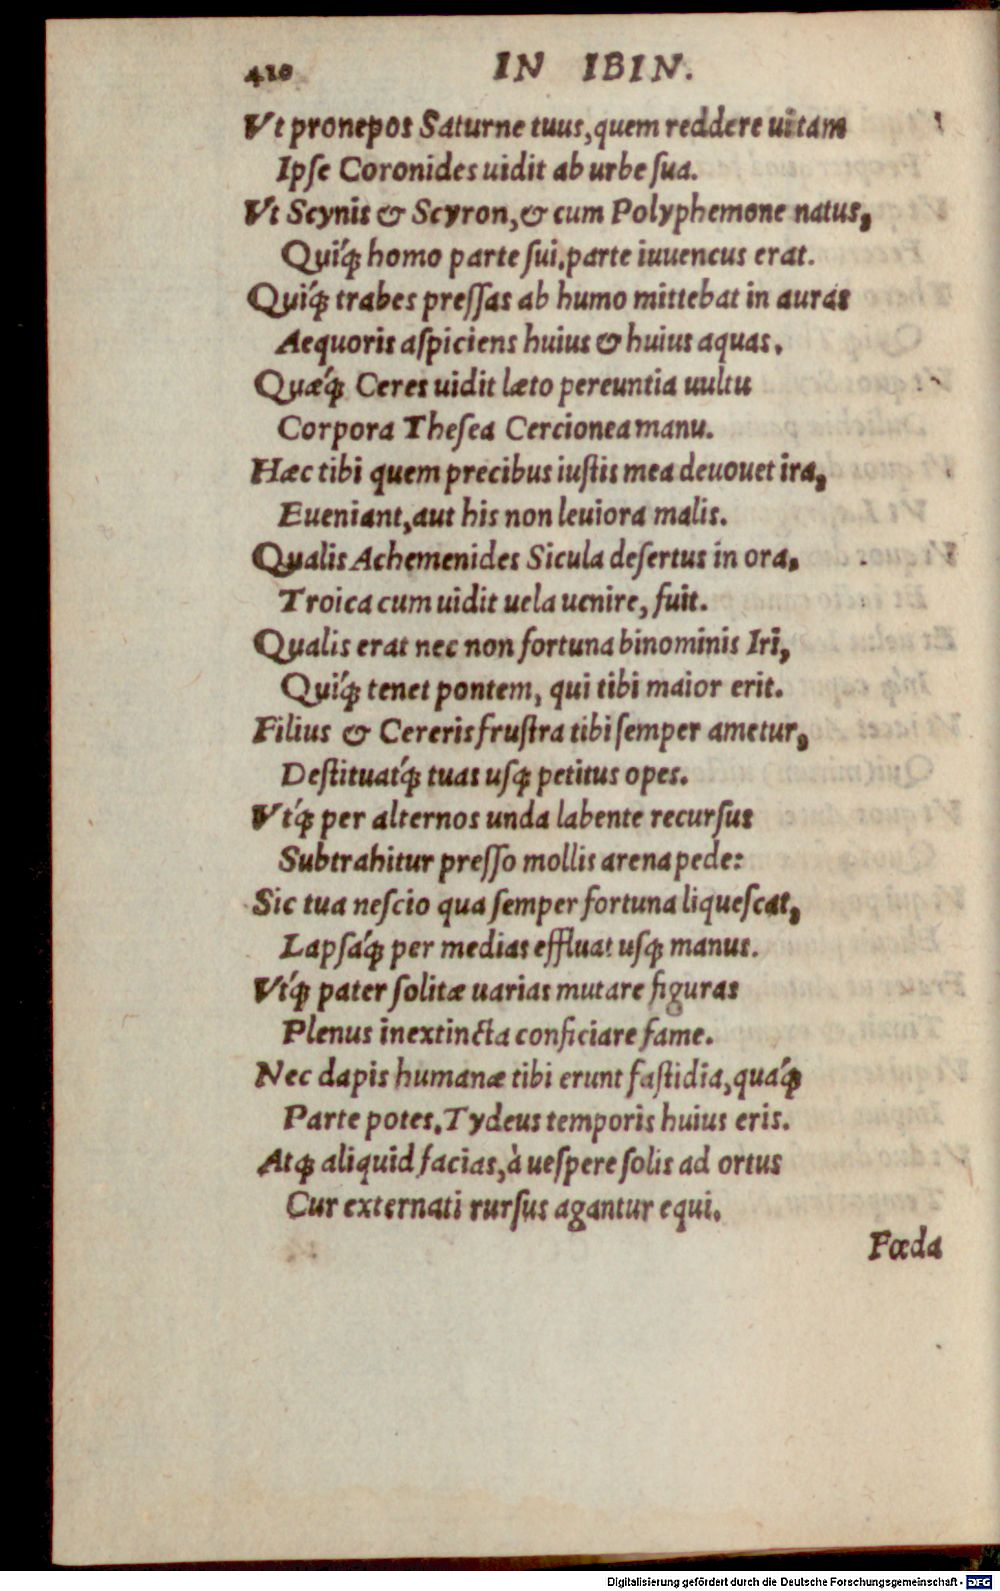 410 IN IBIN.
Vt pronepos Saturne tuus, quem reddere uitam
Ipse Coronides uidit ab urbe sua.
Vt Scynis & Scyron, & cum Polyphemone natus,
Quiq́; homo parte sui, parte iuuencus erat.
Quiq́; trabes pressas ab humo mittebat in auras
Aequoris aspiciens huius & huius aquas.
Quæq́; Ceres uidit læto pereuntia uultu
Corpora Thesea Cercionea manu.
Hæc tibi quem precibus iustis mea deuouet ira,
Eueniant, aut his non leuiora malis.
Qualis Achemenides Sicula desertus in ora,
Troica cum uidit uela uenire, fuit.
Qualis erat nec non fortuna binominis Iri,
Quiq́; tenet pontem, qui tibi maior erit.
Filius & Cereris frustra tibi semper ametur,
Destituatq́; tuas usq; petitus opes.
Vtq́; per alternos unda labente recursus
Subtrahitur presso mollis arena pede:
Sic tua nescio qua semper fortuna liquescat,
Lapsaq́; per medias effluat usq; manus.
Vtq́; pater solitæ uarias mutare figuras
Plenus inextincta conficiare fame.
Nec dapis humanæ tibi erunt fastidia, quaq́;
Parte potes, Tydeus temporis huius eris.
Atq; aliquid facias, à uespere solis ad ortus
Cur externati rursus agantur equi.
Fœda
Digitalisierung gefördert durch die Deutsche Forschungsgemeinschaft - DFG